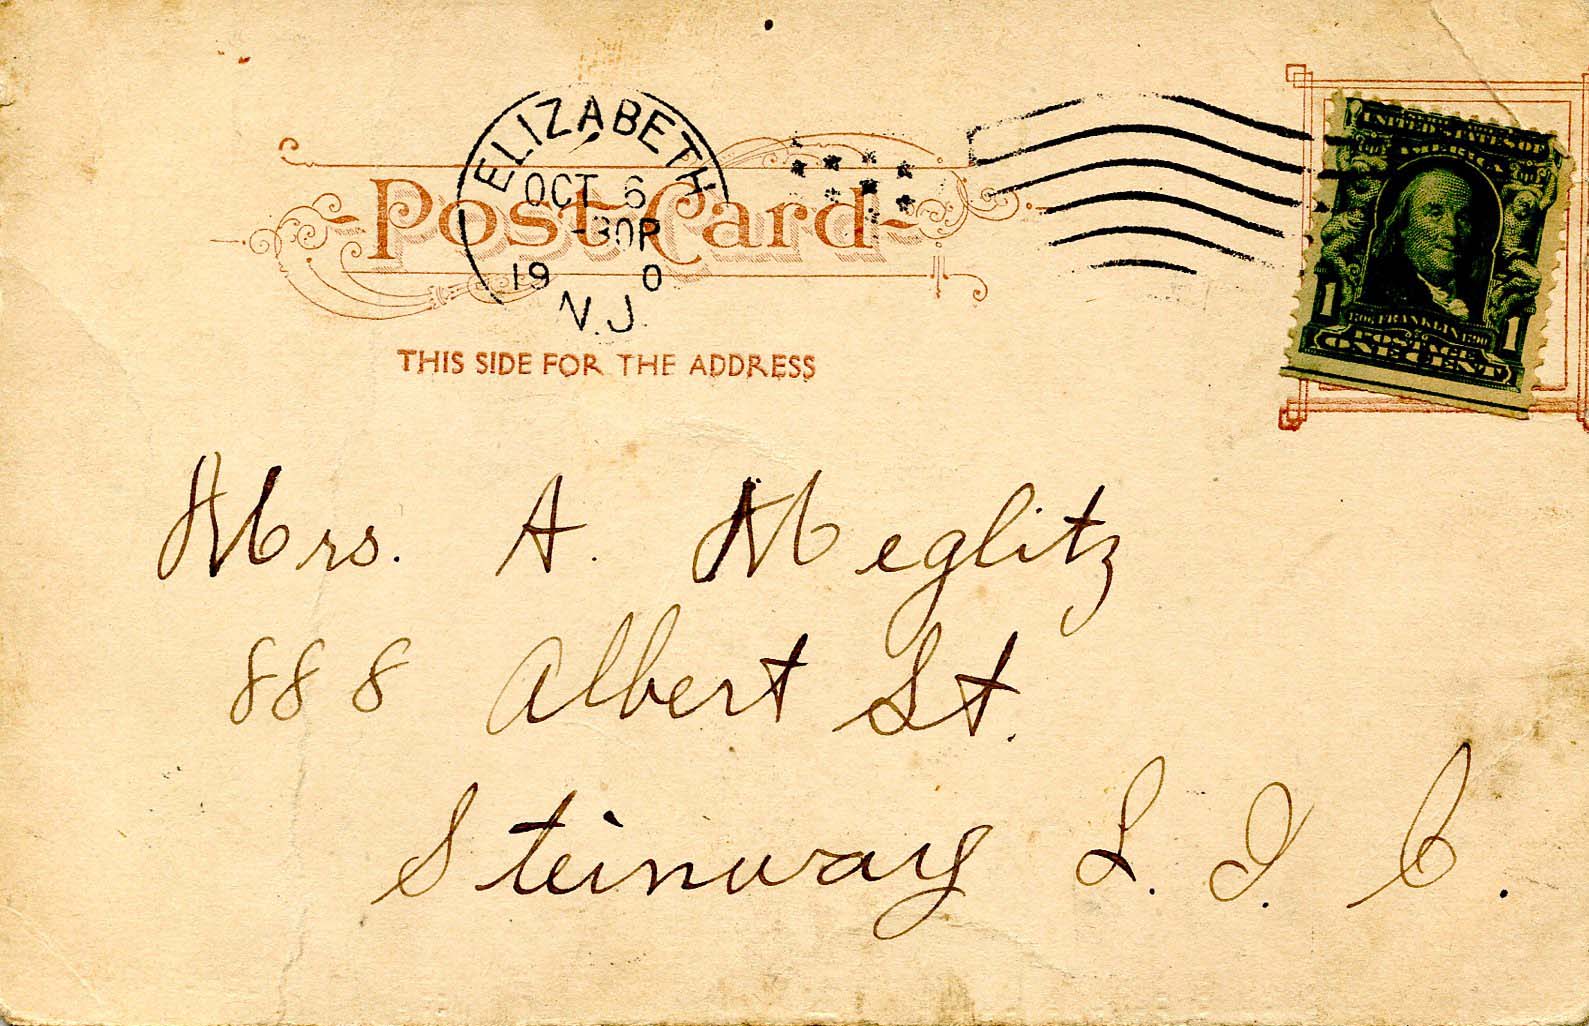 ELIZABETH
OCT 6
-30P
19 0
N.J.
Post Card
THIS SIDE FOR THE ADDRESS
UNITED STATES OF
AMERICA
1 1
1706 FRANKLIN 1790
POSTAGE
ONE CENT
Mrs. A. Meglitz
888 Albert St.
Steinway L. I. C.